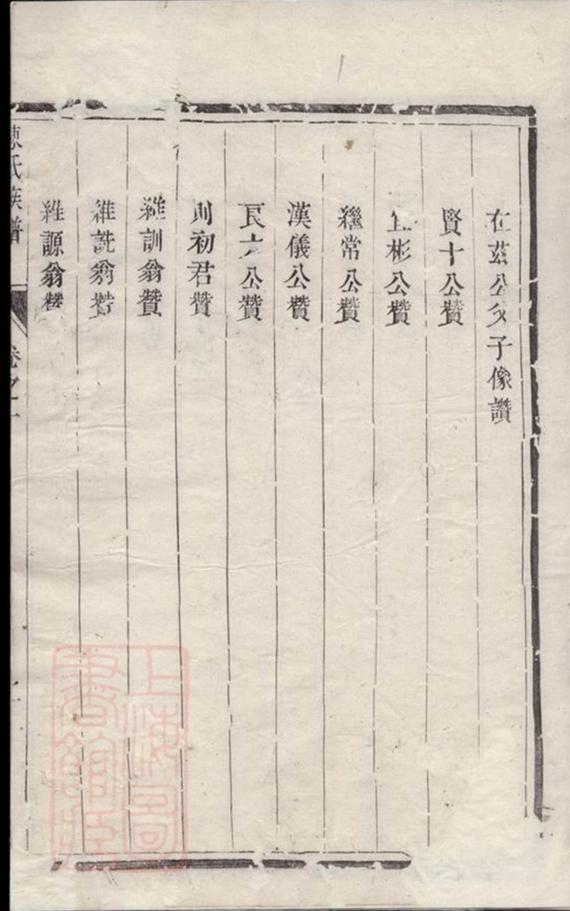 在茲公父子像讚
賢十公贊
上彬公贊
繼常公贊
漢儀公贊
良六公贊
則初君贊
維訓翁贊
維詵翁贊
維源翁贊
陳氏族譜
卷之一
上海圖書館藏